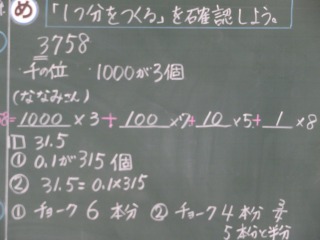 め 「1つ分をつくる」を確認しよう。
3758
・千の位 ・1000が3個
(ななみさん)
8=1000×3+100×7+10×5+1×8
1 31.5
① 0.1が315個
② 31.5=0.1×315
① チョーク 6 本分 ② チョーク 4 本分
5 本分と半分